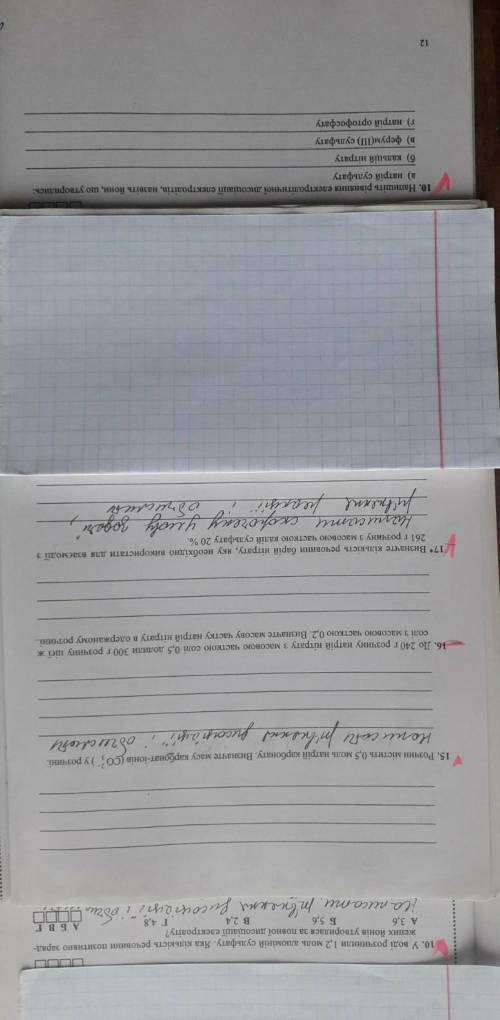 10. У воді розчинили 1,2 моль алюміній сульфату. Яка кількість речовини позитивно заряд-
жених йонів утворилася за повної дисоціації електроліту?
А 3,6 Б 5,6 В 2,4 Г 4,8 А Б В Г
Написати рівняння дисоціації і
15. Розчин містить 0,5 моль натрій карбонату. Визначте масу карбонат-іонів (CO₃²⁻) у розчині.
Написати рівняння дисоціації і обчислити
16. До 240 г розчину натрій нітрату з масовою часткою солі 0,5 долили 300 г розчину цієї ж
солі з масовою часткою 0,2. Визначте масову частку натрій нітрату в одержаному розчині.
17* Визначте кількість речовини барій нітрату, яку необхідно використати для взаємодії з
261 г розчину з масовою часткою калій сульфату 20 %.
Написати скорочену умову задачі,
рівняння реакції і обчислити
10. Напишіть рівняння електролітичної дисоціації електролітів, назвіть йони, що утворились:
а) натрій сульфату
б) кальцій нітрату
в) ферум(III) сульфату
г) натрій ортофосфату
12